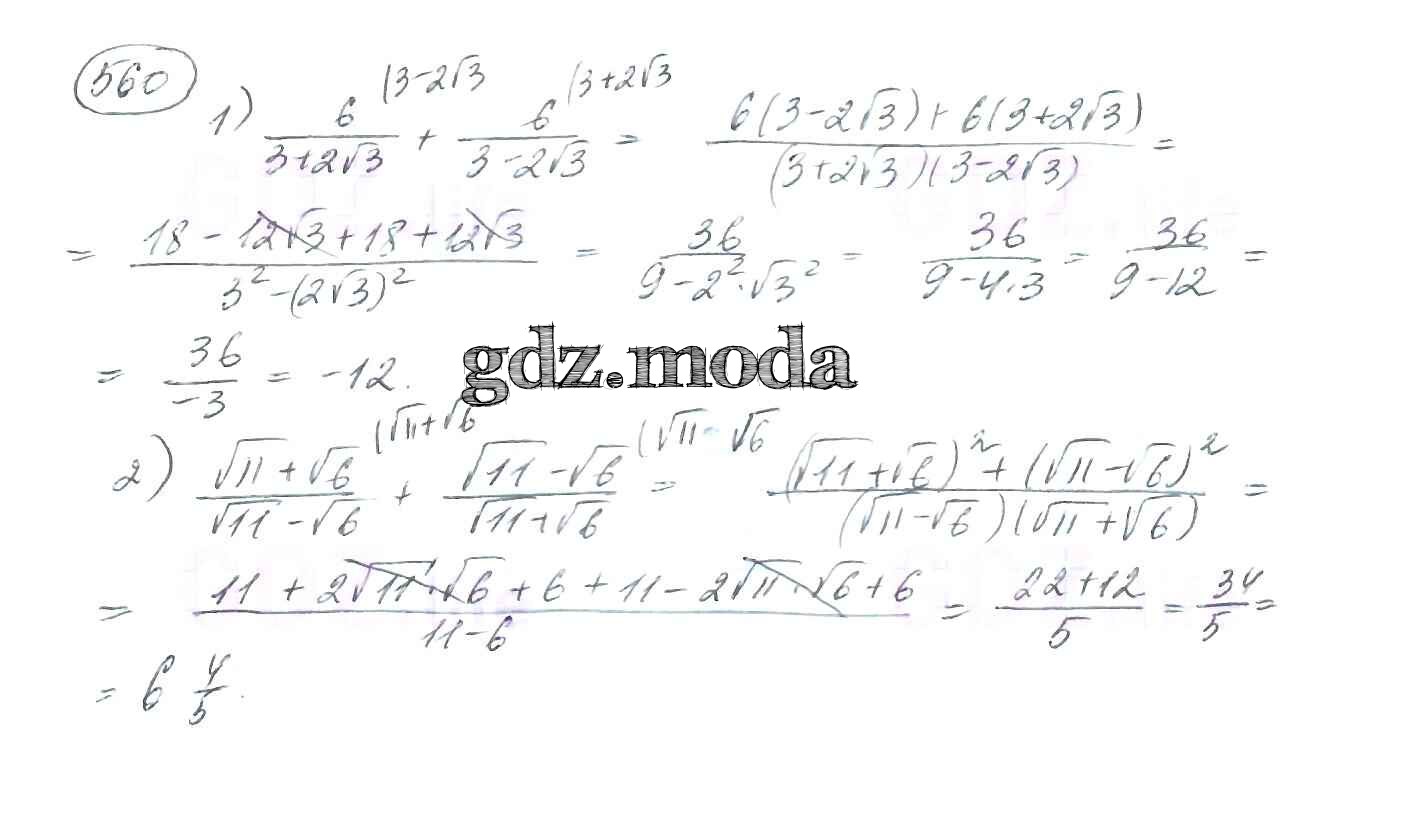 560
1) 6/(3+2√3) (3-2√3 + 6/(3-2√3) (3+2√3 = (6(3-2√3)+6(3+2√3))/((3+2√3)(3-2√3)) =
= (18-12√3+18+12√3)/(3²-(2√3)²) = 36/(9-2²·√3²) = 36/(9-4·3) = 36/(9-12) =
= 36/-3 = -12.
gdz.moda
2) (√11+√6)/(√11-√6) (√11+√6 + (√11-√6)/(√11+√6) (√11-√6 = ((√11+√6)²+(√11-√6)²)/((√11-√6)(√11+√6)) =
= (11+2√11·√6+6+11-2√11·√6+6)/(11-6) = (22+12)/5 = 34/5 =
= 6 4/5.